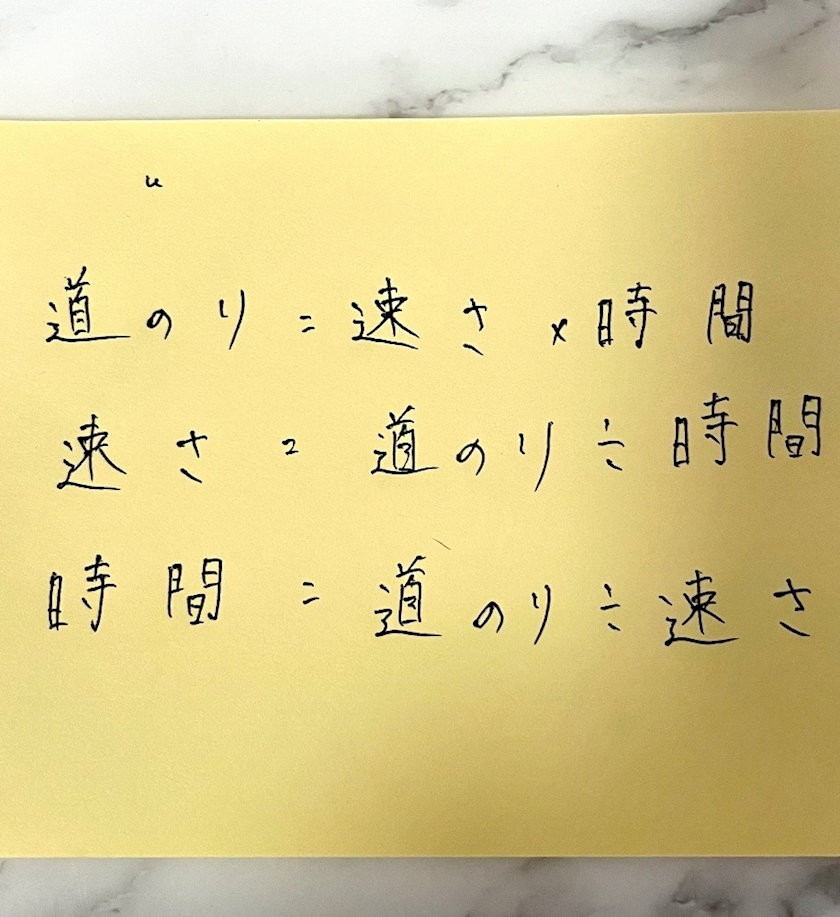 道のり=速さ×時間
速さ=道のり÷時間
時間=道のり÷速さ